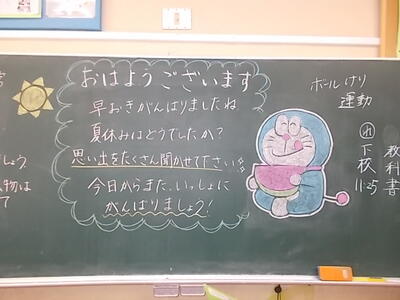 おはようございます
早おきがんばりましたね
夏休みはどうでしたか?
思い出をたくさん聞かせて下さい
今日からまた、いっしょに
がんばりましょう!
ボールけり
運動
れ
下校
11:25
教科書
しょう
物は